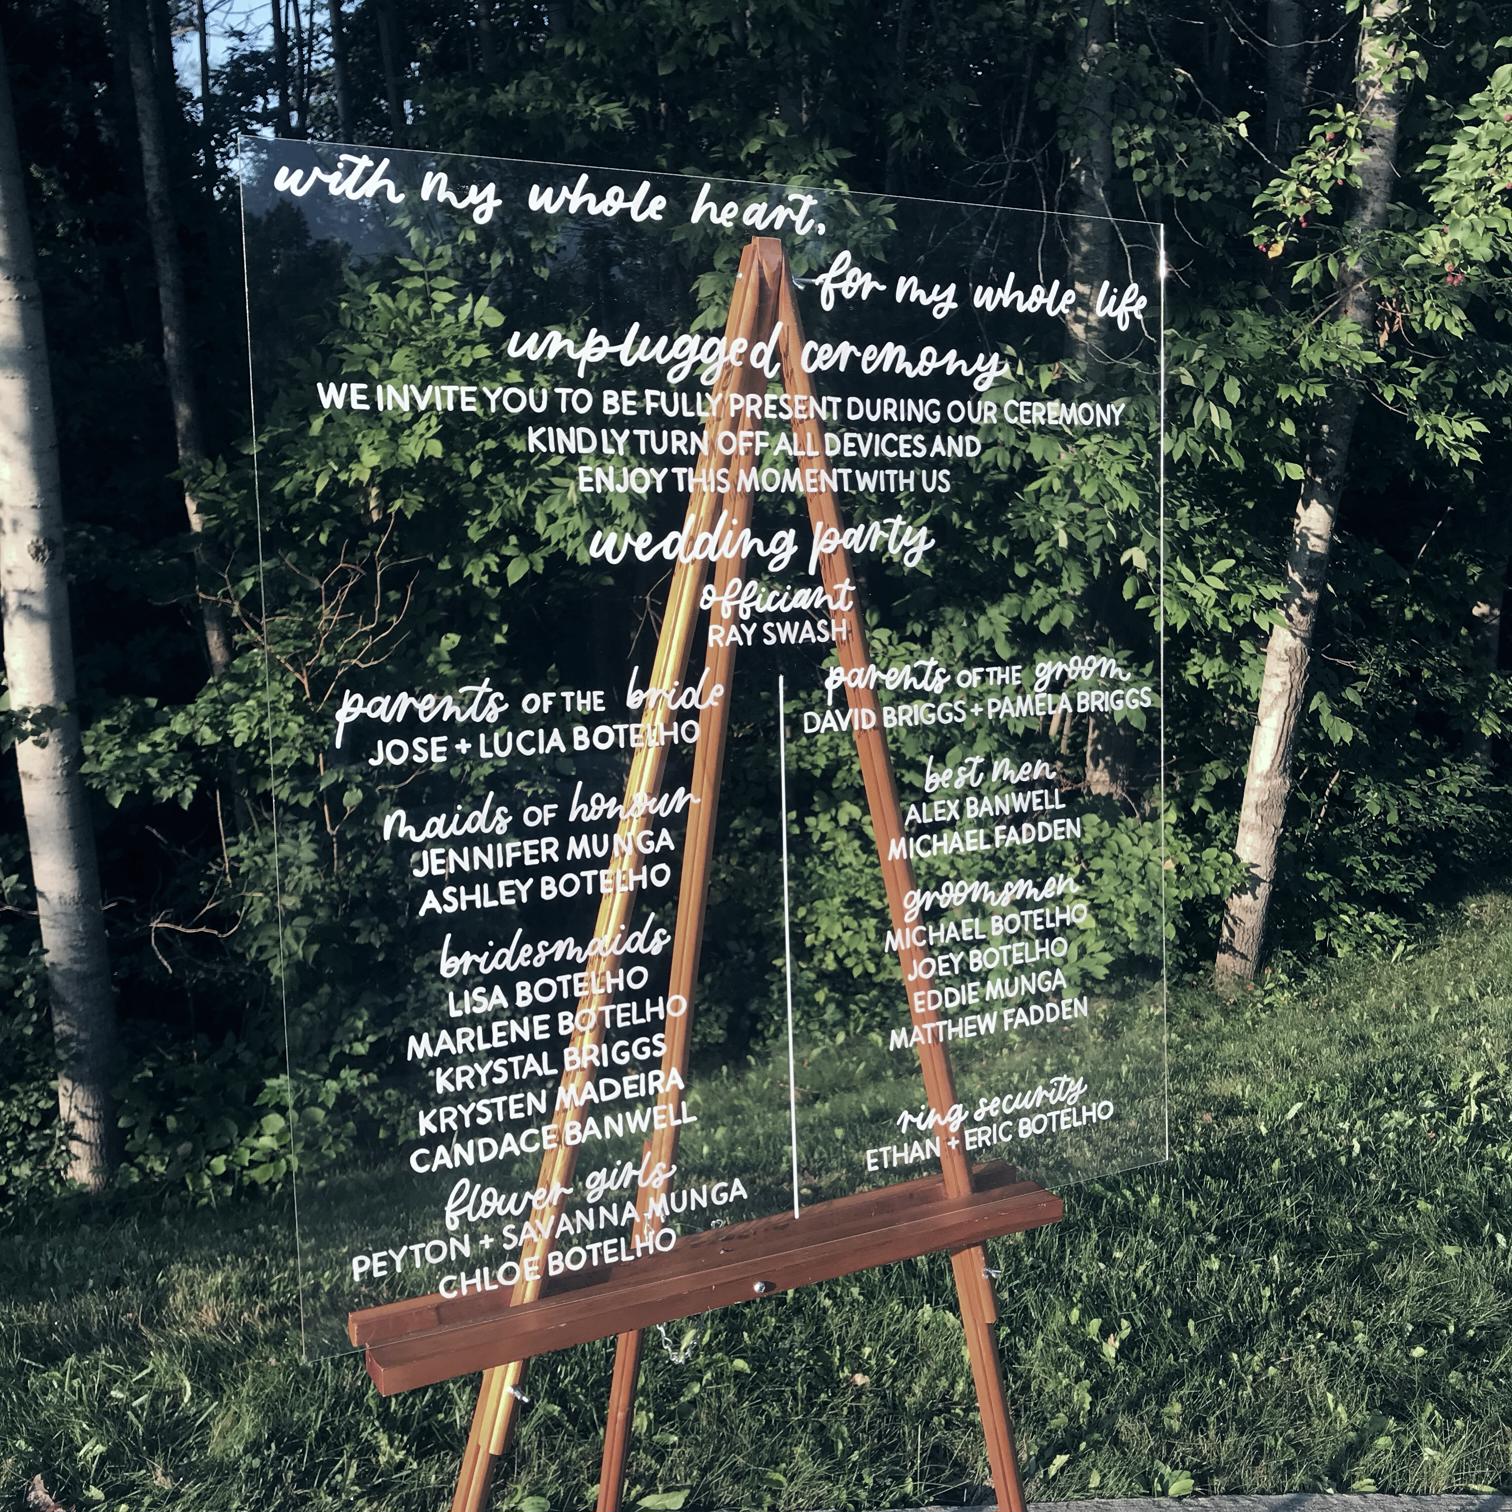 with my whole heart,
for my whole life
unplugged ceremony
WE INVITE YOU TO BE FULLY PRESENT DURING OUR CEREMONY
KINDLY TURN OFF ALL DEVICES AND
ENJOY THIS MOMENT WITH US
wedding party
officiant
RAY SWASH
parents OF THE bride
JOSE + LUCIA BOTELHO
maids OF honour
JENNIFER MUNGA
ASHLEY BOTELHO
bridesmaids
LISA BOTELHO
MARLENE BOTELHO
KRYSTAL BRIGGS
KRYSTEN MADEIRA
CANDACE BANWELL
flower girls
PEYTON + SAVANNA MUNGA
CHLOE BOTELHO
parents OF THE groom
DAVID BRIGGS + PAMELA BRIGGS
best men
ALEX BANWELL
MICHAEL FADDEN
groomsmen
MICHAEL BOTELHO
JOEY BOTELHO
EDDIE MUNGA
MATTHEW FADDEN
ring security
ETHAN + ERIC BOTELHO